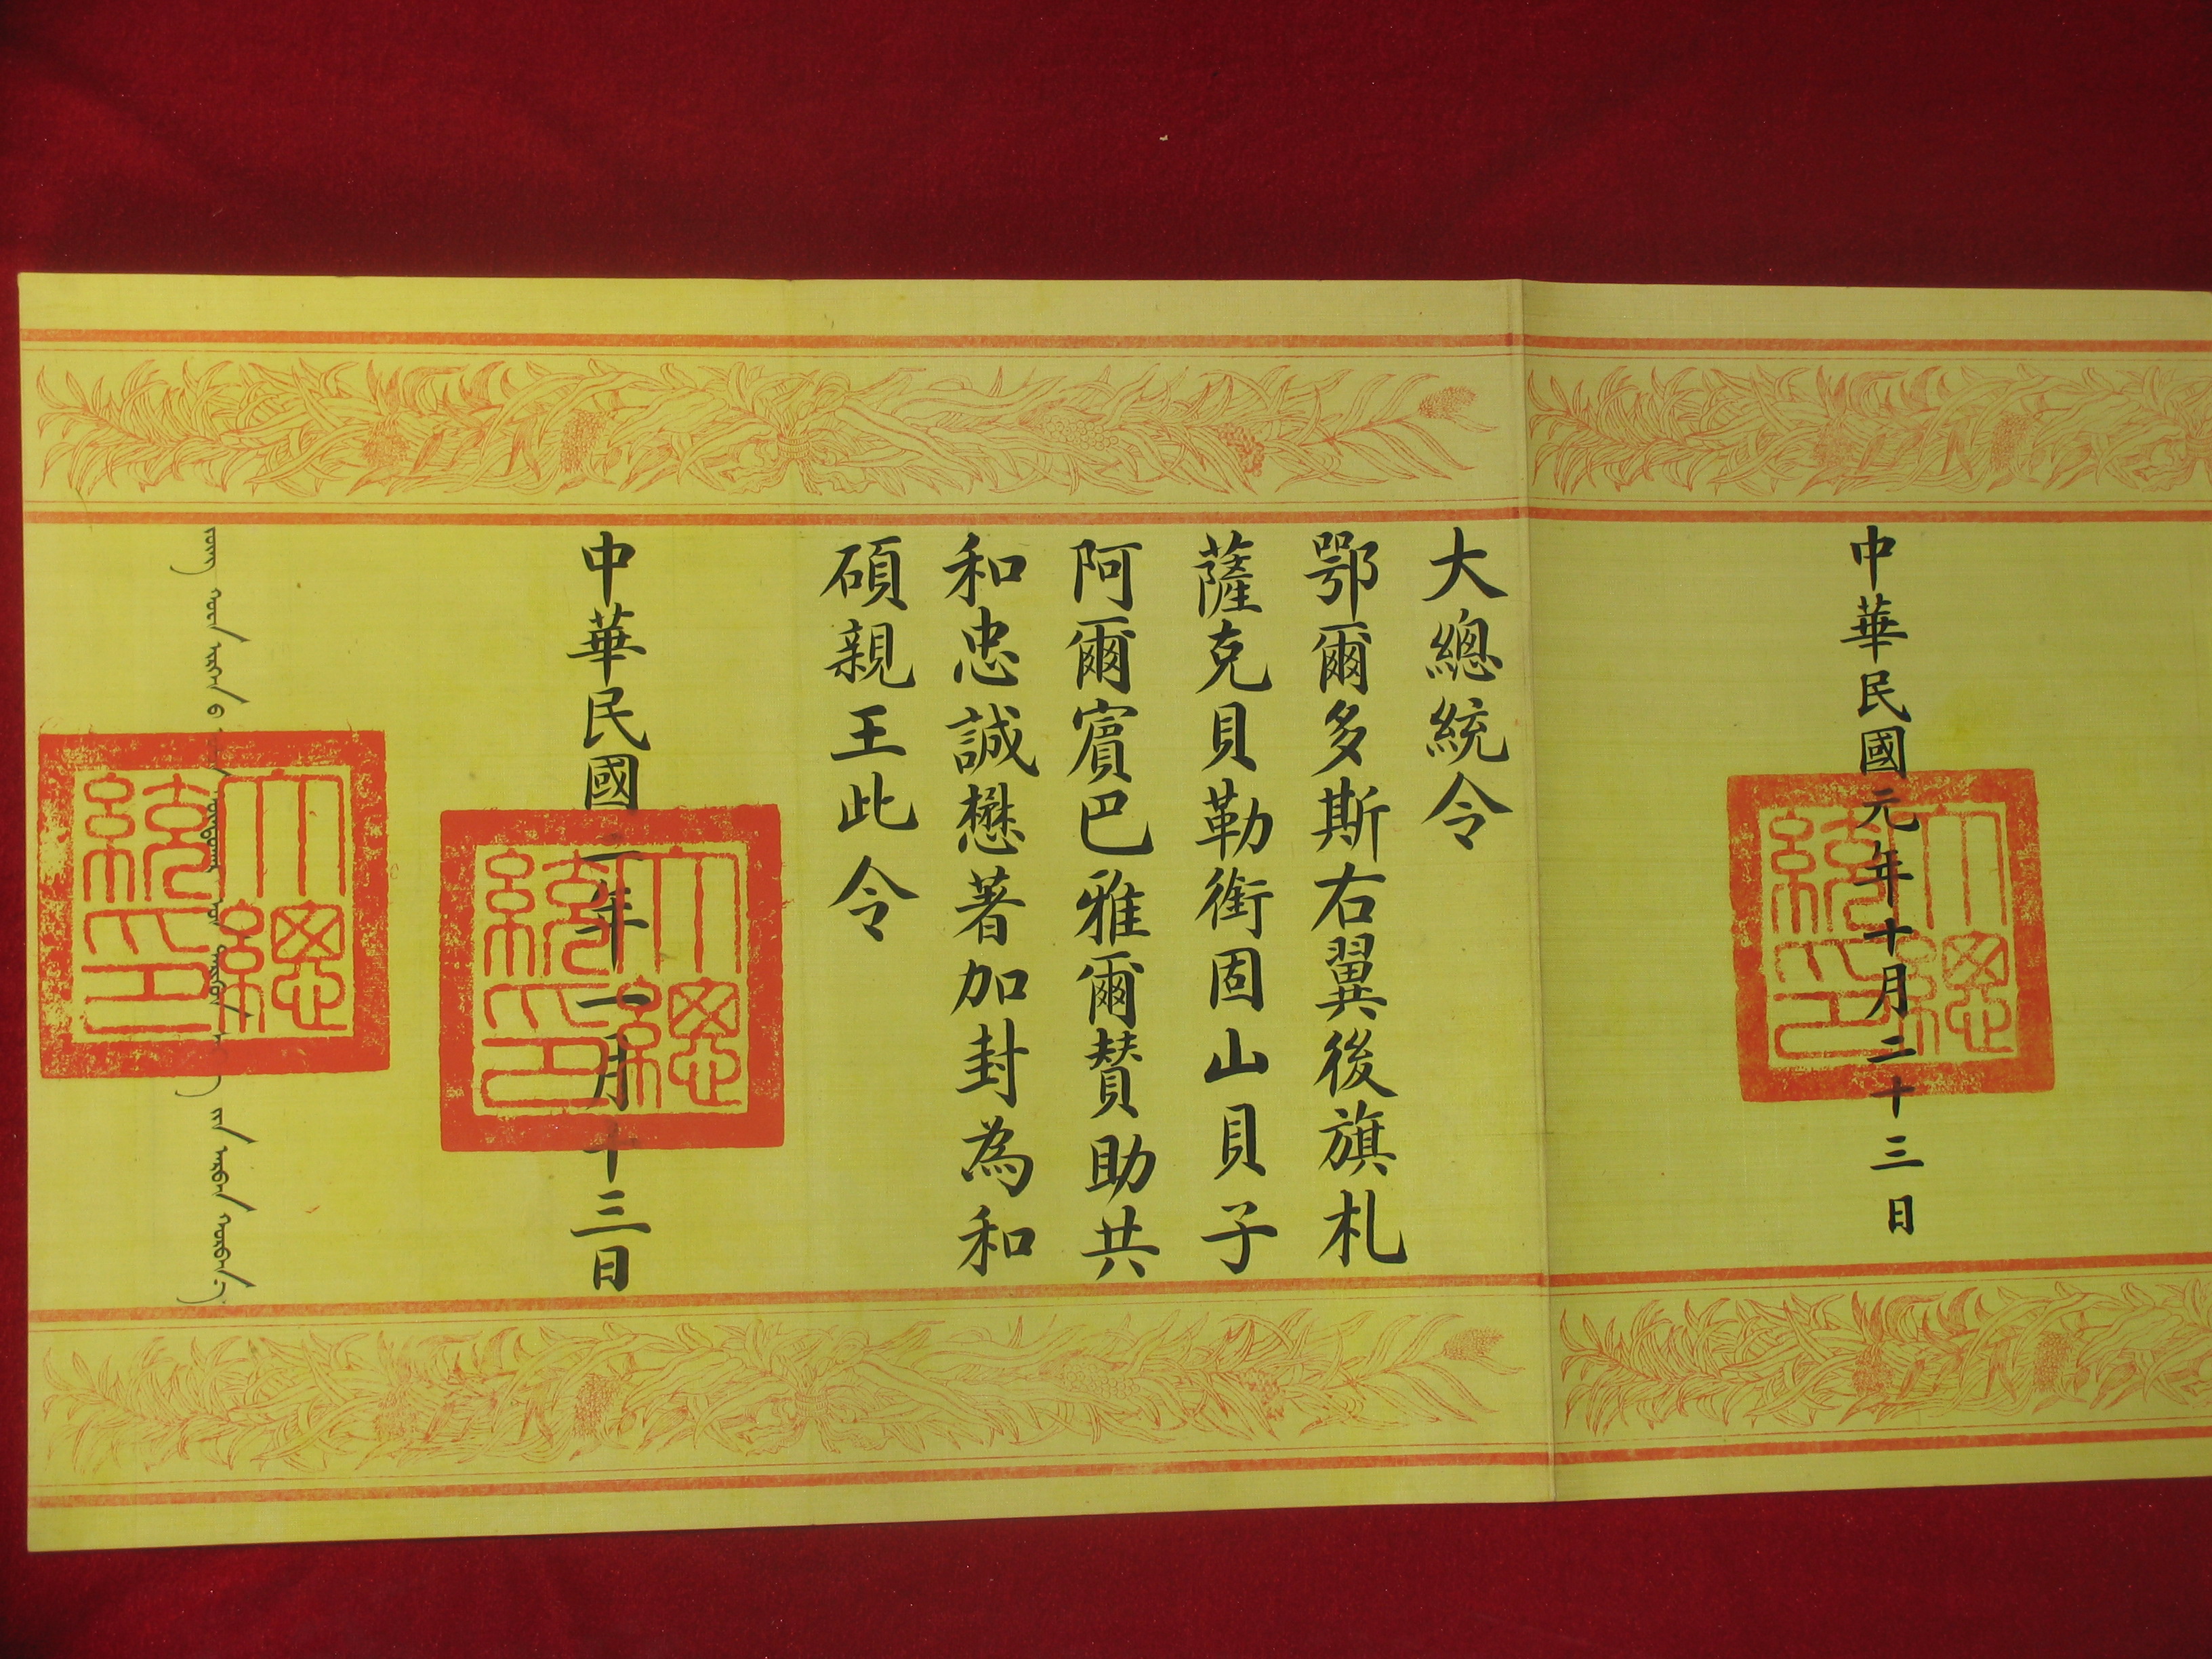 中華民國元年十月二十三日
大總統令
鄂爾多斯右翼後旗札
薩克貝勒銜固山貝子
阿爾賓巴雅爾贊助共
和忠誠懋著加封為和
碩親王此令
中華民國二年一月十三日
大總統印
大總統印
大總統印